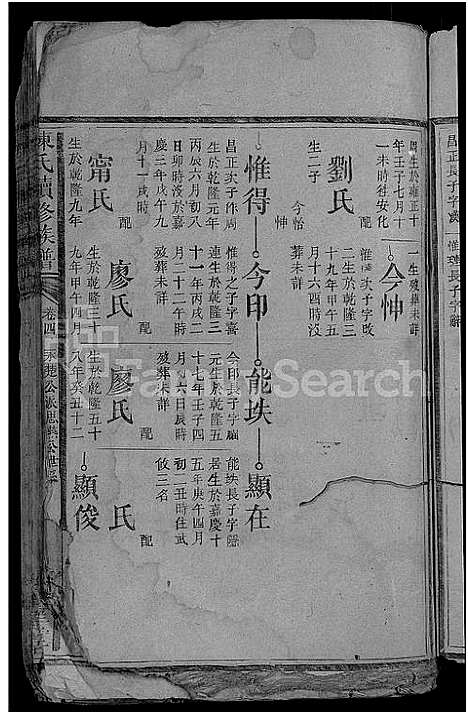 昌正長子字
惟璉長子字
周生於雍正十
年壬子七月十
一未時往安化
劉氏
配
生二子
今怡
今忡
一生殁葬未詳
今忡
惟 次子字
二生於乾隆三
十九年甲午五
月十六酉時没
葬未詳
惟得
昌正次子作周
生於乾隆元年
丙辰六月初八
日卯時没於嘉
慶三年戊午九
月十一戌時
甯氏
配
生於乾隆九年
今印
惟得之子字
連生於乾隆三
十一年丙戌二
月二十二戌時
殁葬未詳
廖氏
配
生於乾隆三十
九年甲午四月
能垁
今印長子字
元生於乾隆五
十七年壬子四
月初六日辰時
殁葬未詳
廖氏
配
生於乾隆五十
八年癸丑十二
顯在
能垁長子字隱
居生於嘉慶十
五年庚午四月
初二丑時住武
攸三名
氏
配
顯俊
陳氏續修族譜
卷四
FamilySearch